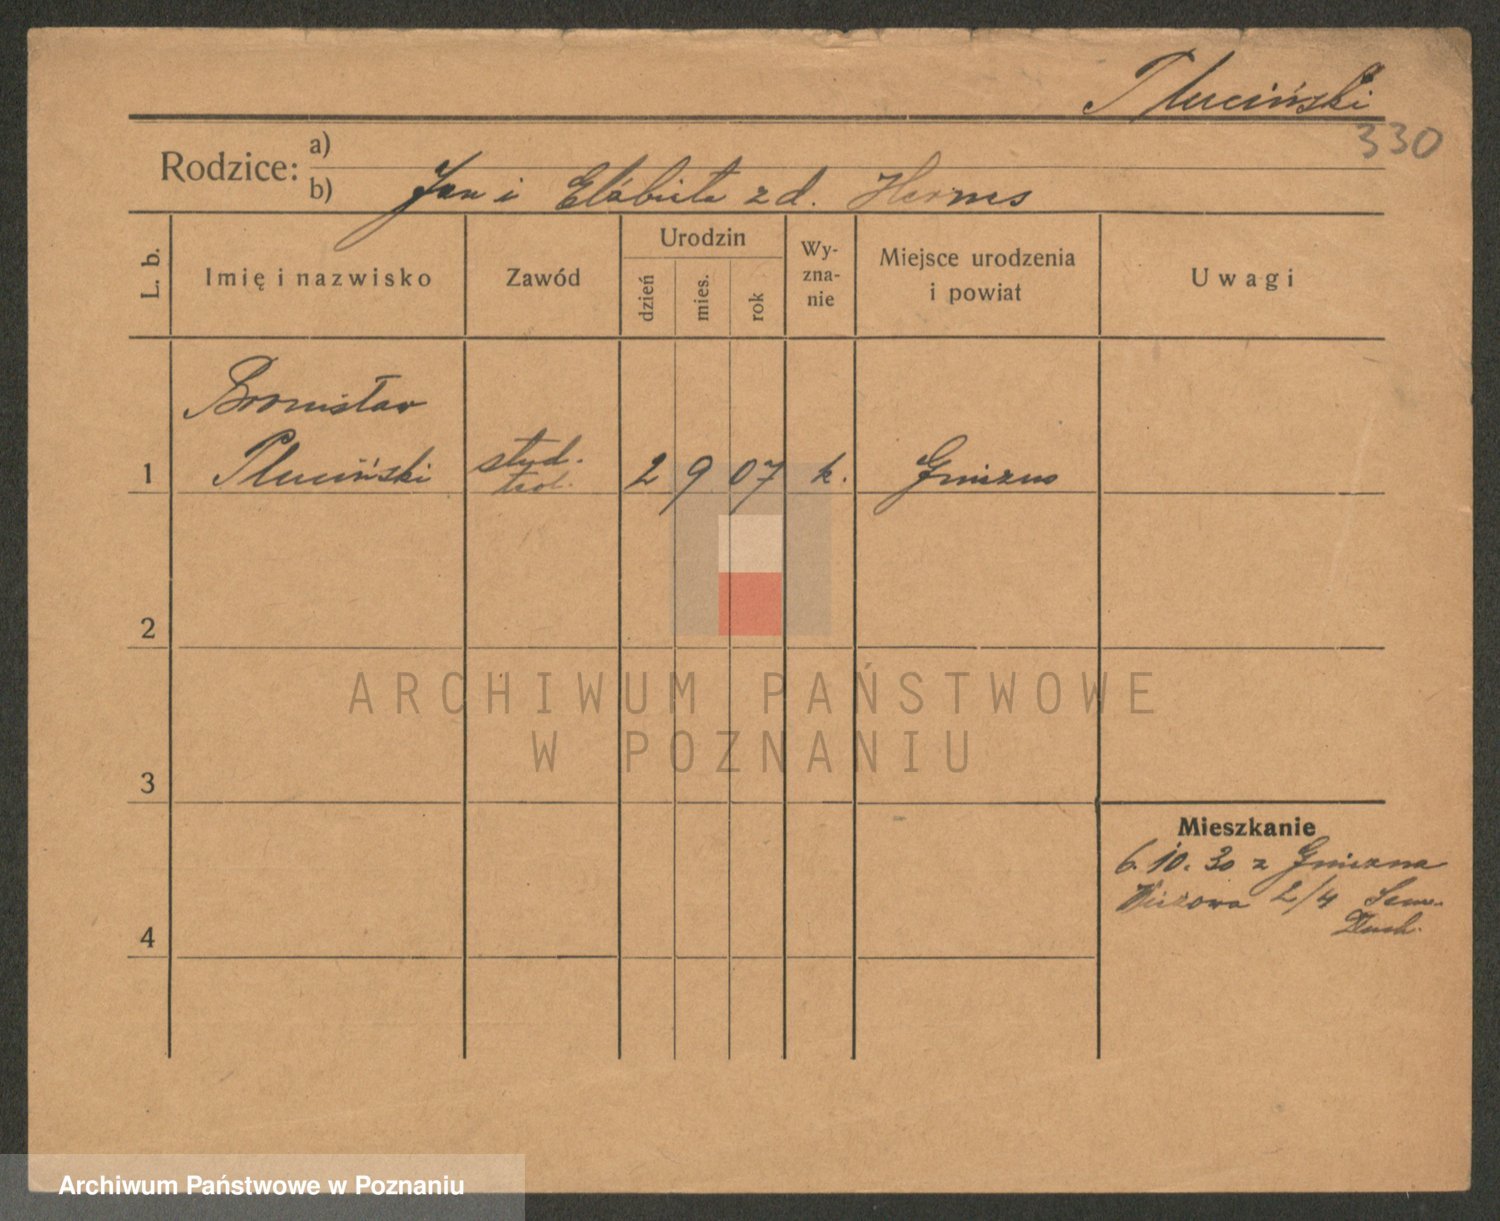 Pluciński
330
Rodzice: a)
b) Jan i Elżbieta z d. Hermes
L. b.
Imię i nazwisko
Zawód
Urodzin
dzień
mies.
rok
Wy-
zna-
nie
Miejsce urodzenia
i powiat
Uwagi
Bronisław
1 Pluciński stud. 2 9 07 k. Gniezno
teol.
2
3
4
Mieszkanie
6.10.30 z Gniezna
Wieżowa 2/4 Sem.
Duch.
ARCHIWUM PAŃSTWOWE
W POZNANIU
Archiwum Państwowe w Poznaniu